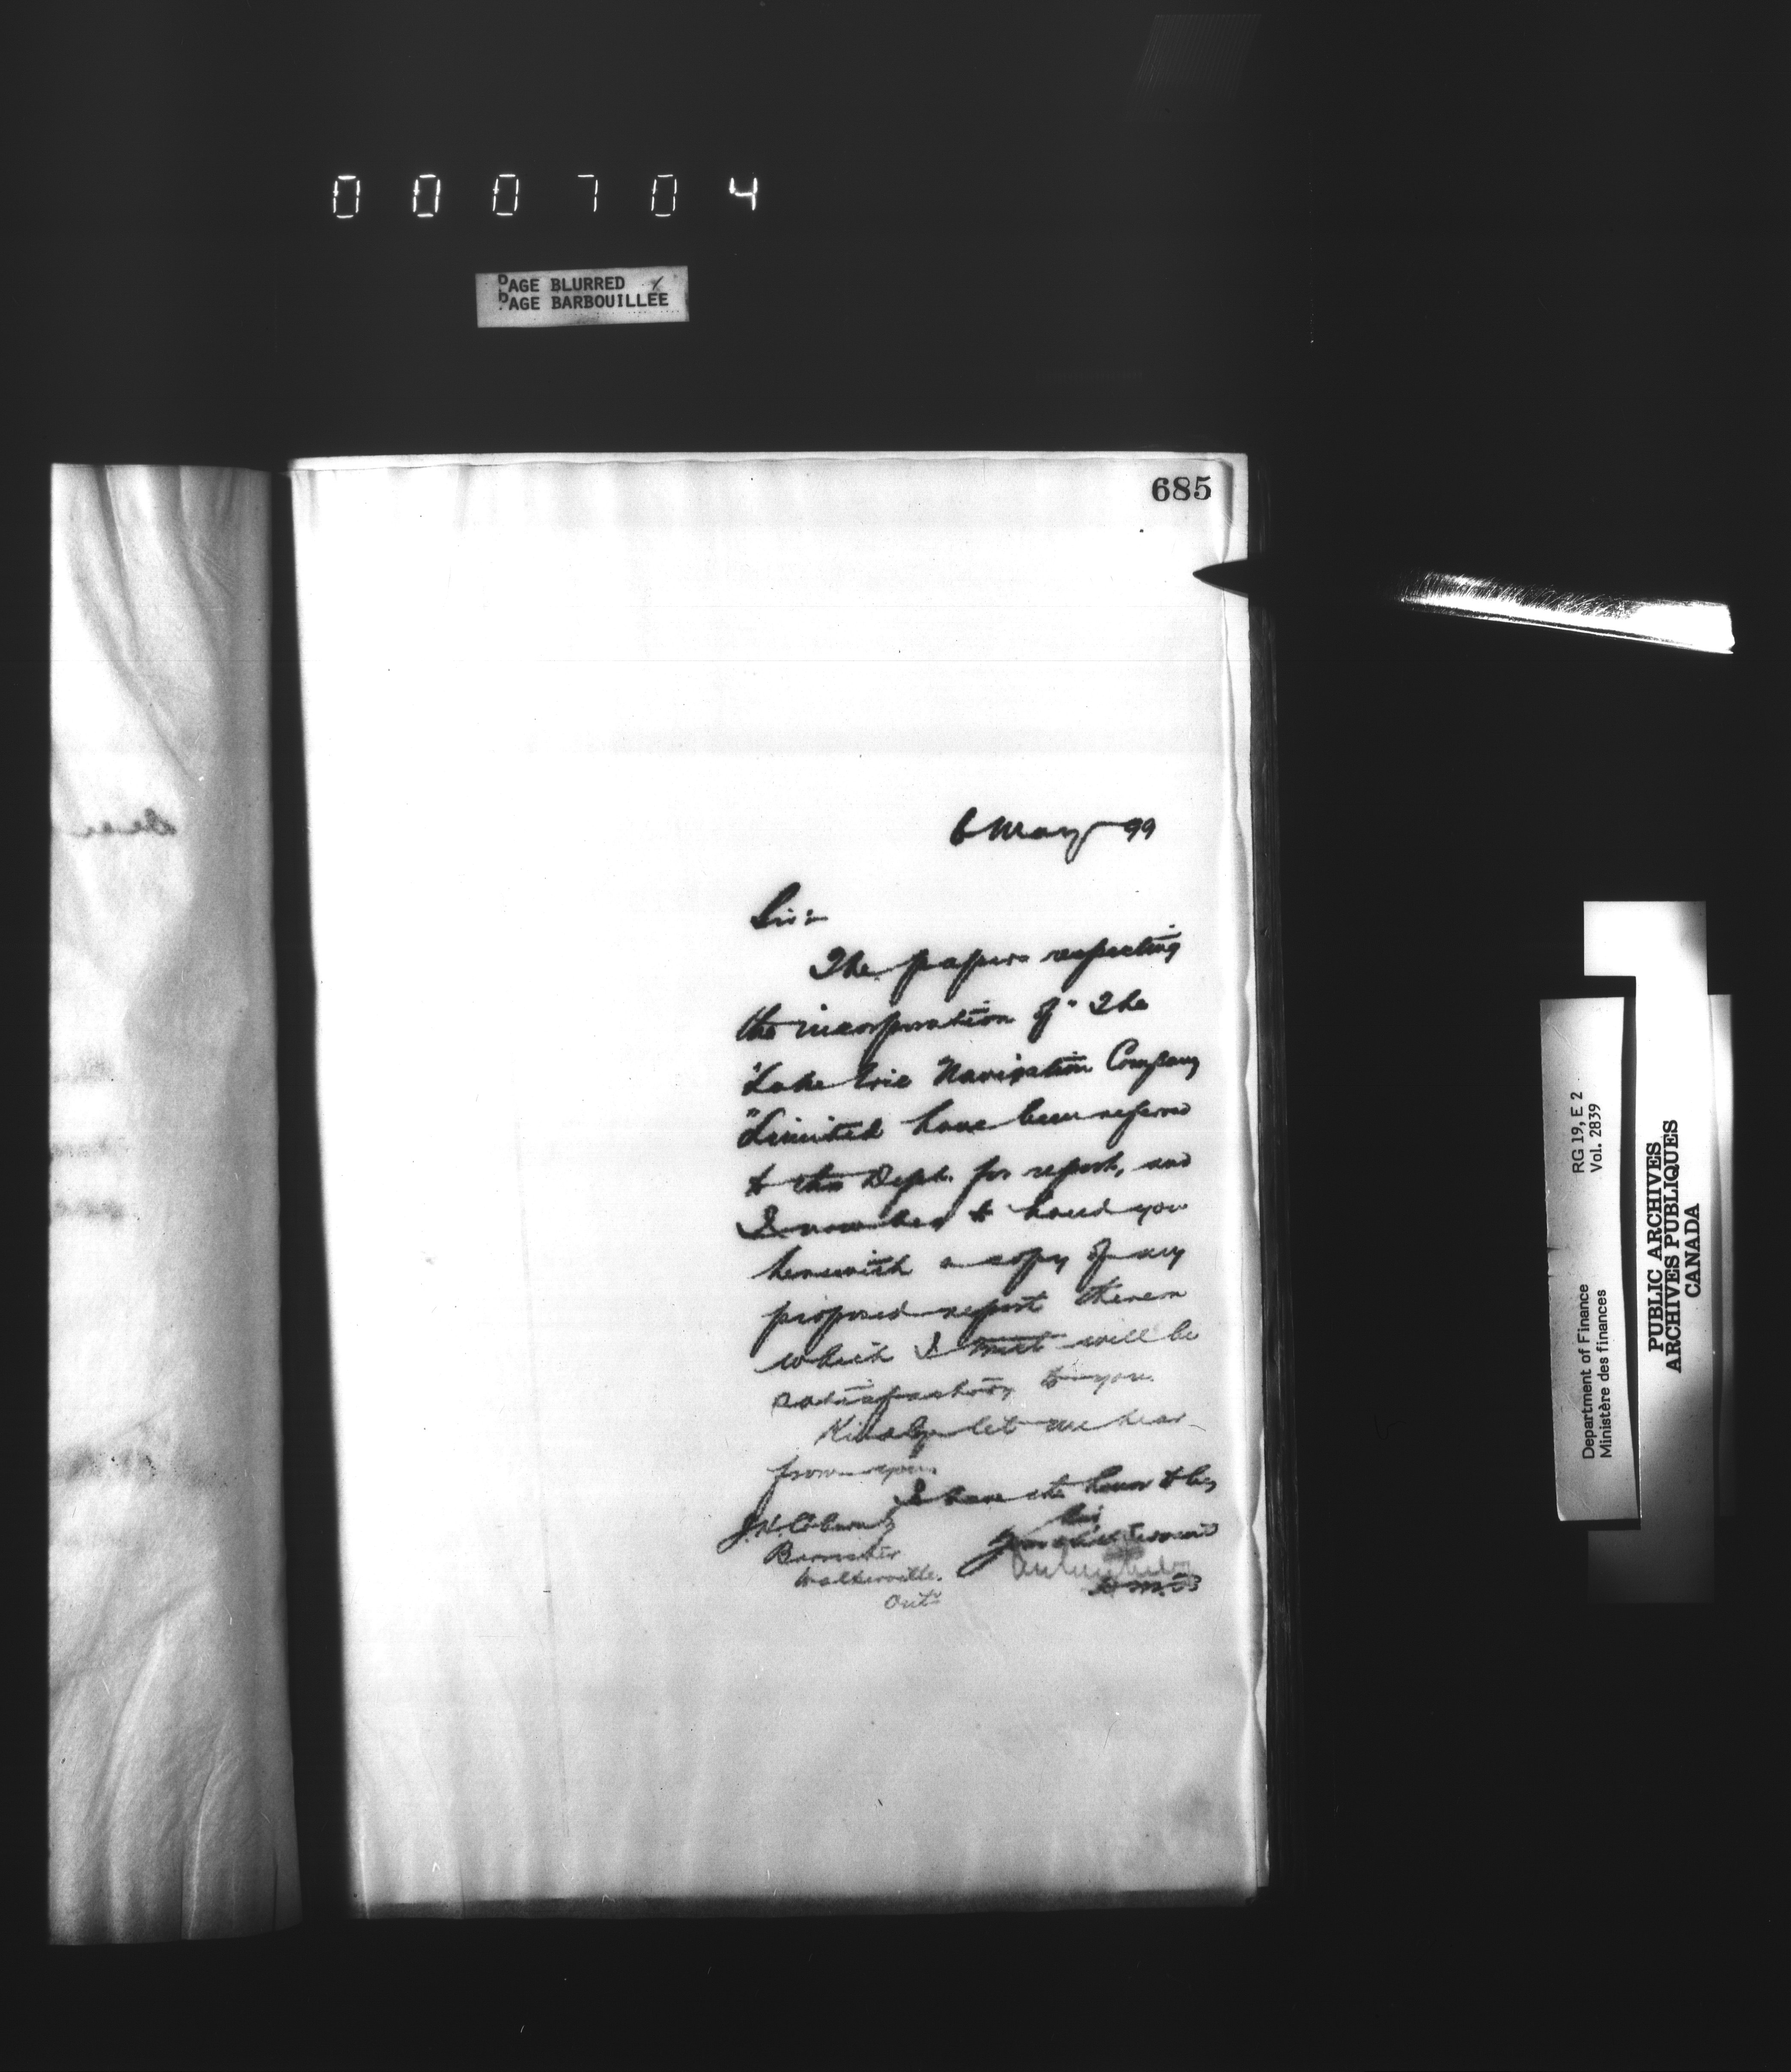 000704
PAGE BLURRED
PAGE BARBOUILLÉE
685
6 May 99
Sir:
The papers respecting
the incorporation of "The
"Lake Erie Navigation Company
"Limited have been referred
to this Dept. for report, and
I now beg to hand you
herewith a copy of my
proposed report thereon
which I trust will be
satisfactory to you.
Kindly let me hear
from you.
I have the honor to be,
Sir
Your obdt servant
D.M.F.
Barrister
Walkerville.
Ont
RG 19, E 2
Vol. 2839
Department of Finance
Ministère des finances
PUBLIC ARCHIVES
ARCHIVES PUBLIQUES
CANADA